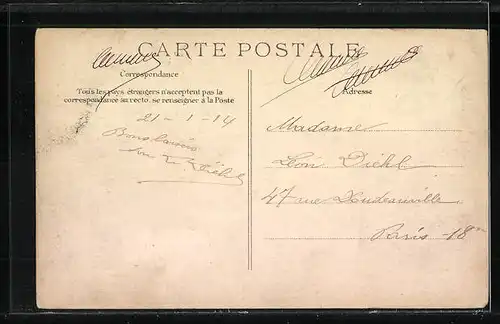 CARTE POSTALE
Correspondance
Tous les pays étrangers n'acceptent pas la
correspondance au recto, se renseigner à la Poste
Adresse
21-1-14
Bons baisers
Diehl
Madame
Léon Diehl
47 rue
Paris - 18e